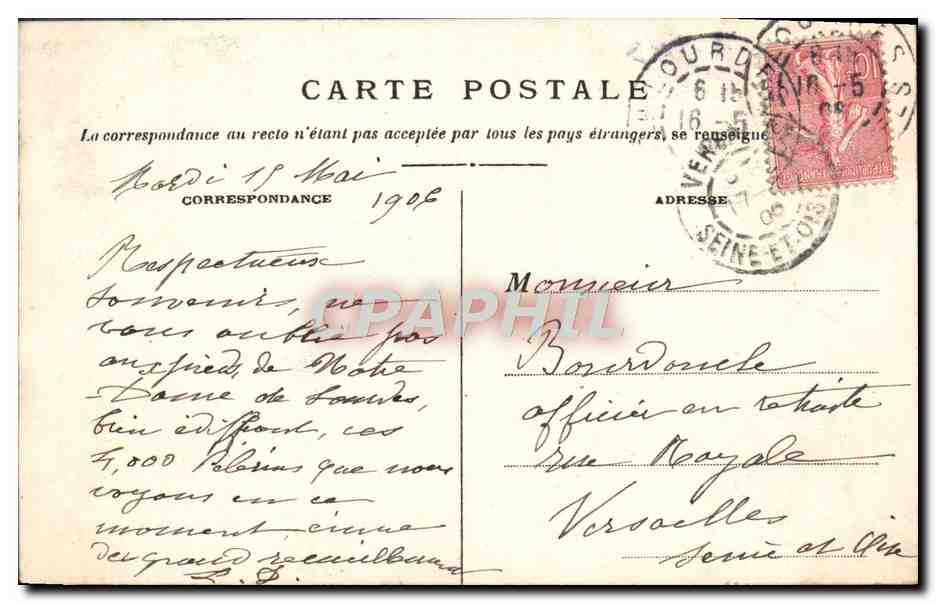 CARTE POSTALE
La correspondance au recto n'étant pas acceptée par tous les pays étrangers, se renseigne
Mardi 15 Mai
1906
CORRESPONDANCE
ADRESSE
Respectueux
souvenirs, ne
vous oublie pas
aux pieds de Notre
Dame de Lourdes,
bien édifiant, ces
4,000 Pèlerins que nous
voyons en ce
moment
grand
Monsieur
officier en retraite
rue Royale
Versailles
Seine et Oise
LOURDES
6 15
16 -5
16 -5
06
SEINE-ET-OISE
REPUBLIQUE FRANÇAISE
10
CPAPHIL